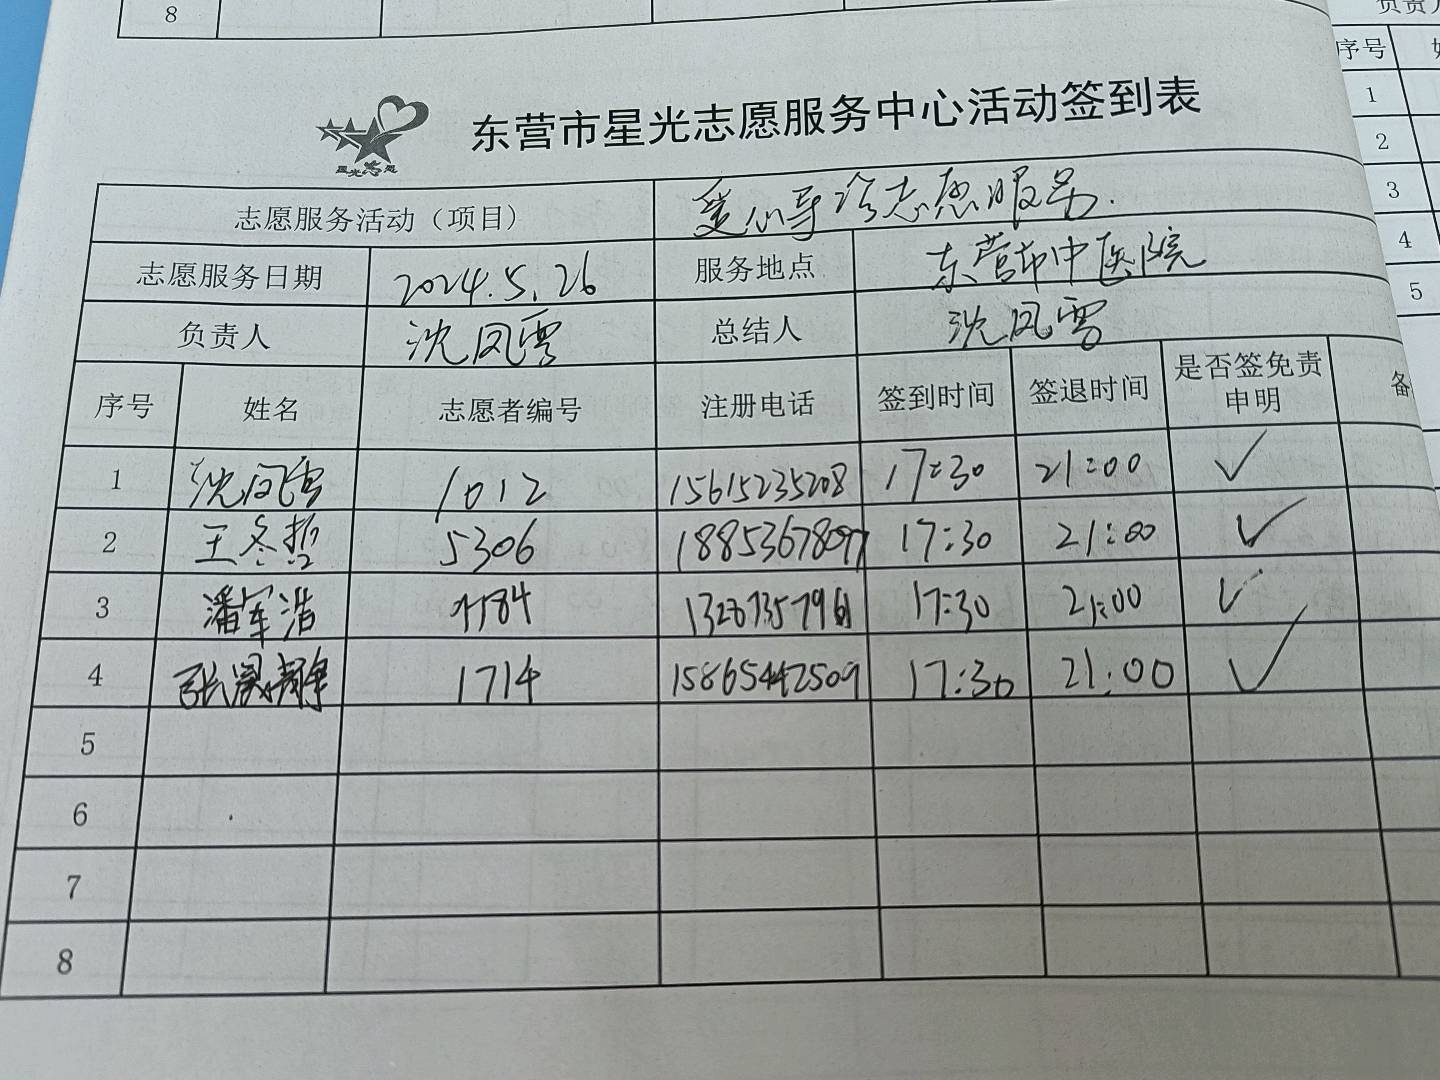 8
负责人
序号
1
2
3
4
5
星光志愿
东营市星光志愿服务中心活动签到表
志愿服务活动（项目） 爱心导诊志愿服务.
志愿服务日期 2024.5.26 服务地点 东营市中医院
负责人 沈凤雪 总结人 沈凤雪
序号 姓名 志愿者编号 注册电话 签到时间 签退时间 是否签免责申明 备
1 沈凤雪 1012 15615235208 17:30 21:00 ✓
2 王冬哲 5306 18853678097 17:30 21:00 ✓
3 潘军浩 17:30 21:00 ✓
4 1714 15865442509 17:30 21:00 ✓
5
6
7
8